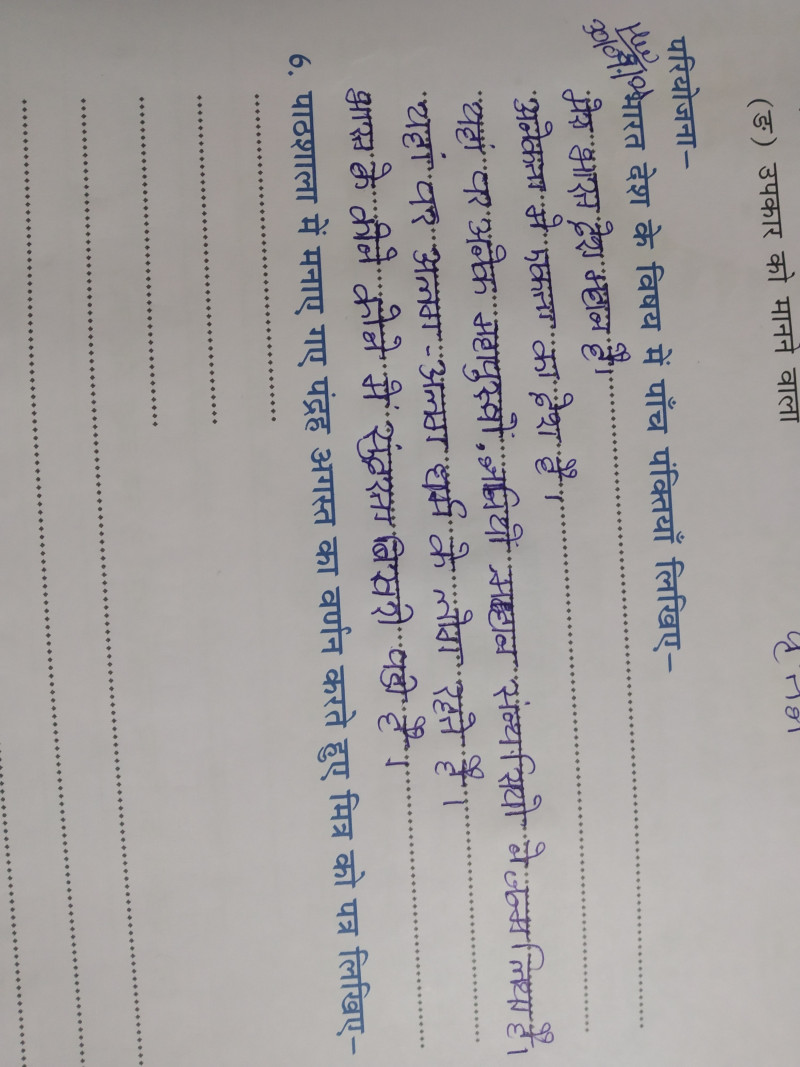 (ङ) उपकार को मानने वाला
परियोजना–
भारत देश के विषय में पाँच पंक्तियाँ लिखिए–
मेरा भारत देश महान है।
अनेकता मे एकता का देश है।
यहां पर अनेक महापुरुषो, ऋषियों महान संन्यासियो ने जन्म लिया है।
यहां पर अलग-अलग धर्म के लोग रहते है।
भारत के कोने कोने में सुंदरता बिखरी पड़ी है।
6. पाठशाला में मनाए गए पंद्रह अगस्त का वर्णन करते हुए मित्र को पत्र लिखिए–